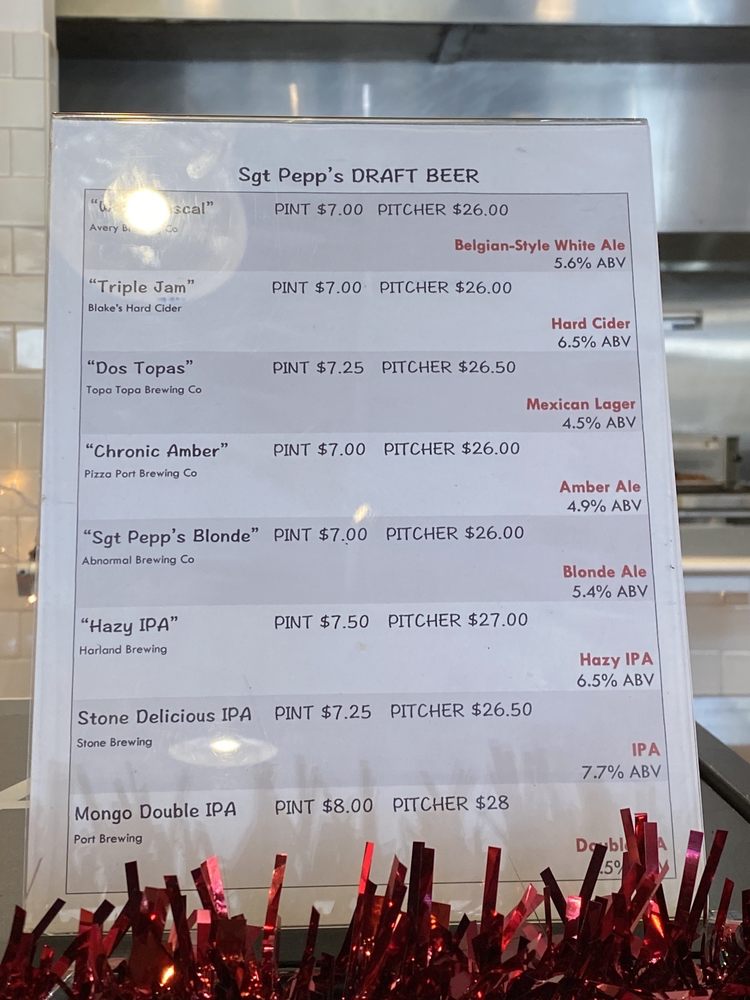 Sgt Pepp's DRAFT BEER
PINT $7.00 PITCHER $26.00
Avery Co
Belgian-Style White Ale
5.6% ABV
"Triple Jam" PINT $7.00 PITCHER $26.00
Blake's Hard Cider
Hard Cider
6.5% ABV
"Dos Topas" PINT $7.25 PITCHER $26.50
Topa Topa Brewing Co
Mexican Lager
4.5% ABV
"Chronic Amber" PINT $7.00 PITCHER $26.00
Pizza Port Brewing Co
Amber Ale
4.9% ABV
"Sgt Pepp's Blonde" PINT $7.00 PITCHER $26.00
Abnormal Brewing Co
Blonde Ale
5.4% ABV
"Hazy IPA" PINT $7.50 PITCHER $27.00
Harland Brewing
Hazy IPA
6.5% ABV
Stone Delicious IPA PINT $7.25 PITCHER $26.50
Stone Brewing
IPA
7.7% ABV
Mongo Double IPA PINT $8.00 PITCHER $28
Port Brewing